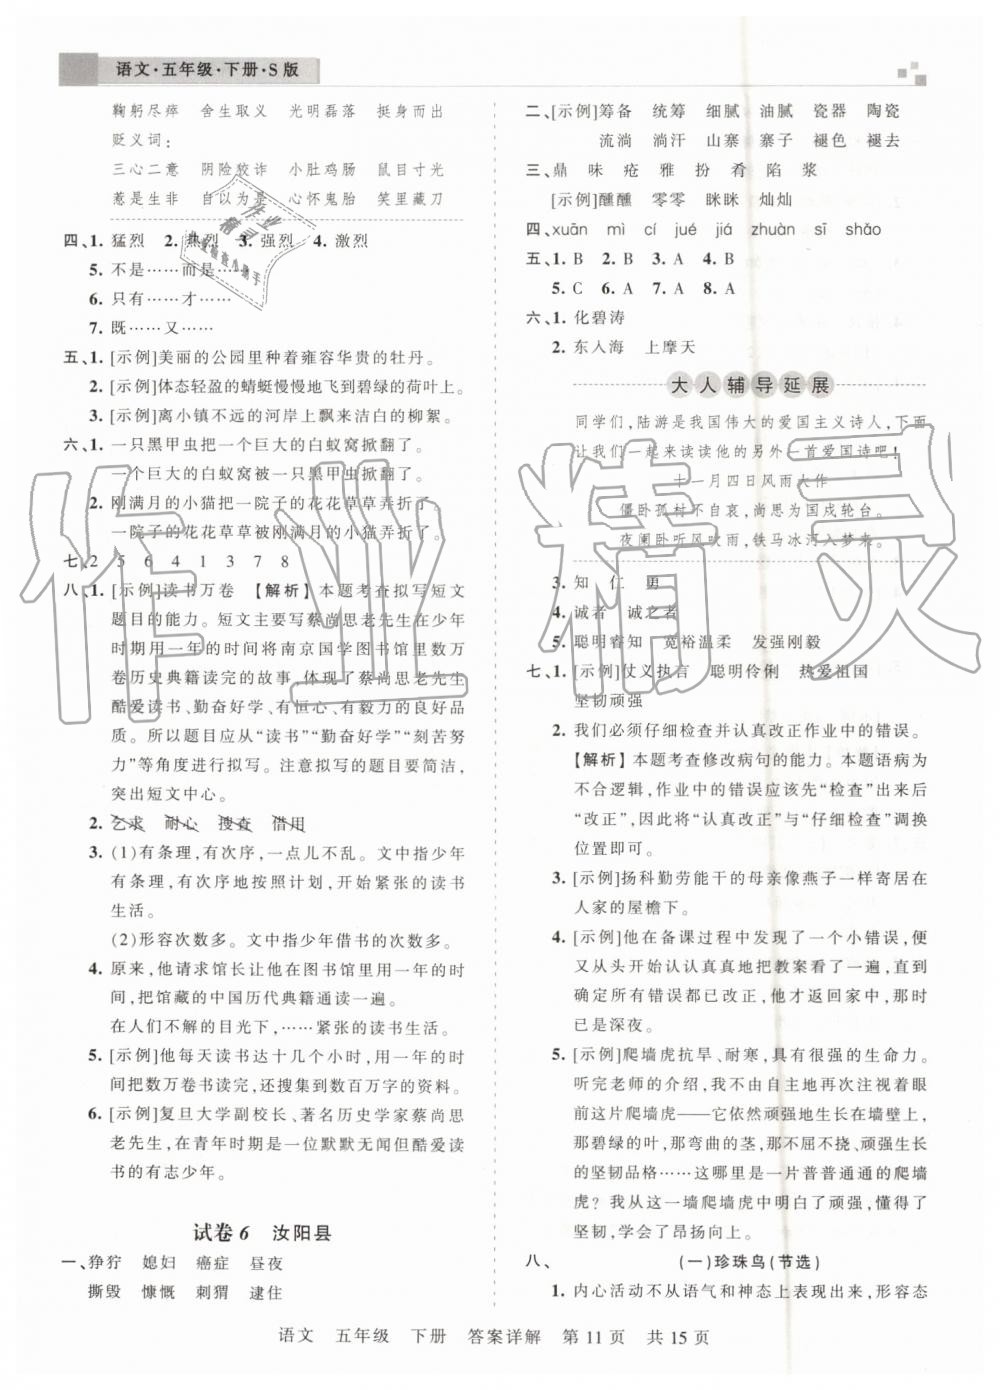 语文·五年级·下册·S版
鞠躬尽瘁　舍生取义　光明磊落　挺身而出
贬义词：
三心二意　阴险狡诈　小肚鸡肠　鼠目寸光
惹是生非　自以为是　心怀鬼胎　笑里藏刀
四、1. 猛烈　2. 热烈　3. 强烈　4. 激烈
5. 不是……而是……
6. 只有……才……
7. 既……又……
五、1. [示例]美丽的公园里种着雍容华贵的牡丹。
2. [示例]体态轻盈的蜻蜓慢慢地飞到碧绿的荷叶上。
3. [示例]离小镇不远的河岸上飘来洁白的柳絮。
六、1. 一只黑甲虫把一个巨大的白蚁窝掀翻了。
一个巨大的白蚁窝被一只黑甲虫掀翻了。
2. 刚满月的小猫把一院子的花花草草弄折了。
一院子的花花草草被刚满月的小猫弄折了。
七、2　5　6　4　1　3　7　8
八、1. [示例]读书万卷　【解析】本题考查拟写短文
题目的能力。短文主要写蔡尚思老先生在少年
时期用一年的时间将南京国学图书馆里数万
卷历史典籍读完的故事，体现了蔡尚思老先生
酷爱读书、勤奋好学、有恒心、有毅力的良好品
质。所以题目应从“读书”“勤奋好学”“刻苦努
力”等角度进行拟写。注意拟写的题目要简洁，
突出短文中心。
2. 乞求　耐心　搜查　借用
3. (1)有条理，有次序，一点儿不乱。文中指少年
有条理、有次序地按照计划，开始紧张的读书
生活。
(2)形容次数多。文中指少年借书的次数多。
4. 原来，他请求馆长让他在图书馆里用一年的时
间，把馆藏的中国历代典籍通读一遍。
在人们不解的目光下，……紧张的读书生活。
5. [示例]他每天读书达十几个小时，用一年的时
间把数万卷书读完，还搜集到数百万字的资料。
6. [示例]复旦大学副校长、著名历史学家蔡尚思
老先生，在青年时期是一位默默无闻但酷爱读
书的有志少年。
试卷6　汝阳县
一、狰狞　媳妇　癌症　昼夜
撕毁　慷慨　刺猬　逮住
二、[示例]筹备　统筹　细腻　油腻　瓷器　陶瓷
流淌　淌汗　山寨　寨子　褪色　褪去
三、鼎　味　疮　雅　扮　肴　陷　浆
[示例]醺醺　零零　眯眯　灿灿
四、xuān　mì　cí　jué　jiá　zhuàn　sī　shǎo
五、1. B　2. B　3. A　4. B
5. C　6. A　7. A　8. A
六、1. 化碧涛
2. 东入海　上摩天
大人辅导延展
同学们，陆游是我国伟大的爱国主义诗人，下面
让我们一起来读读他的另外一首爱国诗吧！
十一月四日风雨大作
僵卧孤村不自哀，尚思为国戍轮台。
夜阑卧听风吹雨，铁马冰河入梦来。
3. 知　仁　勇
4. 诚者　诚之者
5. 聪明睿知　宽裕温柔　发强刚毅
七、1. [示例]仗义执言　聪明伶俐　热爱祖国
坚韧顽强
2. 我们必须仔细检查并认真改正作业中的错误。
【解析】本题考查修改病句的能力。本题语病为
不合逻辑，作业中的错误应该先“检查”出来后
“改正”，因此将“认真改正”与“仔细检查”调换
位置即可。
3. [示例]扬科勤劳能干的母亲像燕子一样寄居在
人家的屋檐下。
4. [示例]他在备课过程中发现了一个小错误，便
又从头开始认认真真地把教案看了一遍，直到
确定所有错误都已改正，他才返回家中，那时
已是深夜。
5. [示例]爬墙虎抗旱、耐寒，具有很强的生命力。
听完老师的介绍，我不由自主地再次注视着眼
前这片爬墙虎——它依然顽强地生长在墙壁上，
那碧绿的叶，那弯曲的茎，那不屈不挠、奋力生长
的坚韧品格……这哪里是一片普普通通的爬墙
虎？我从这一墙爬墙虎中明白了顽强，懂得了
坚韧，学会了昂扬向上。
八、　(一)珍珠鸟(节选)
1. 内心活动不从语气和神态上表现出来，形容态
语文　五年级　下册　答案详解　第11页　共15页
作业精灵
作业
精灵
作业检查小助手